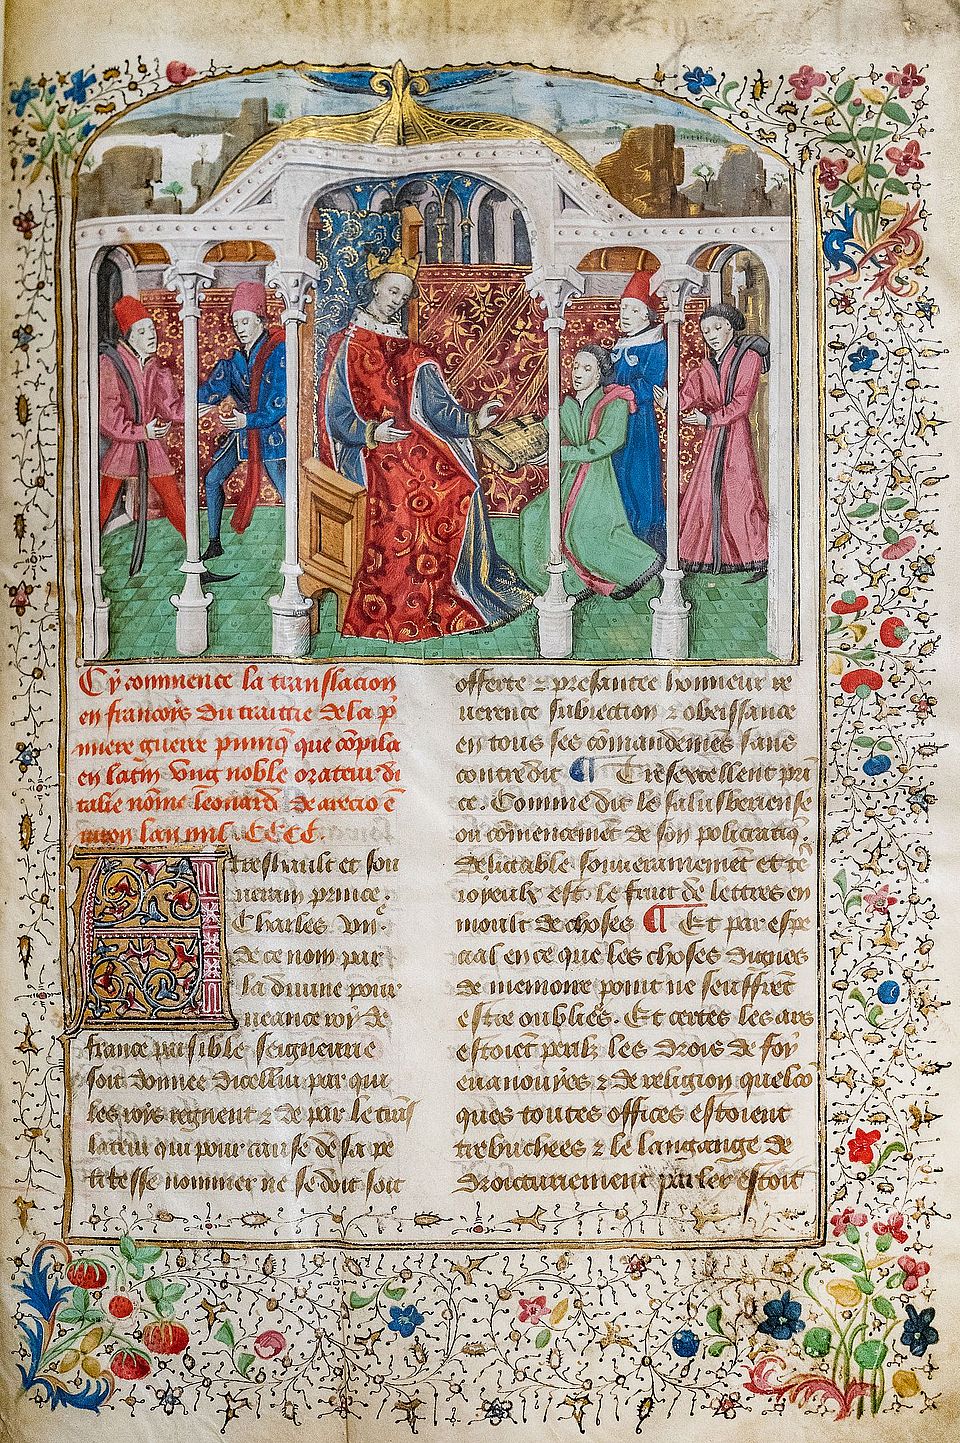 Cy commence la translacion
en francois du traittie de la p̄
miere guerre puniq̄ que cōpila
en latin vng noble orateur di
talie nōme leonard de arecio ē
uiron lan mil CCCC.
Treshault et sou
uerain prince.
Charles vij.
de ce nom par
la diuine pour
ueance roy de
france paisible seigneurie
soit donnee dicellui par qui
les roys regnent ⁊ de par le trās
lateur qui pour cause de sa pe
titesse nommer ne se doit soit
offerte ⁊ presentee honneur re
uerence subiection ⁊ obeissance
en tous ses cōmandemēs sans
contredit ¶ Tresexcellent prin
ce. Comme dit le salusberiense
ou cōmencemēt de son policratiq̄.
delitable souuerainement et tē
ioyeulx est le fruit de lettres en
moult de choses ¶ Et par espe
cial en ce que les choses dignes
de memoire point ne seuffrēt
estre oubliees. Et certes les ars
estoiēt peris les drois de foy
euanouyes ⁊ de religion quelcō
ques toutes offices estoient
trebuchees ⁊ le langaige de
droicturierement parler estoit